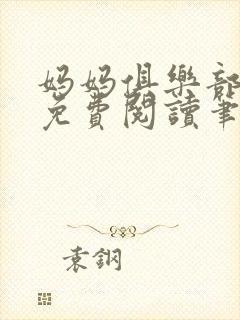 媽媽俱樂部
免費閱讀筆
袁鋼